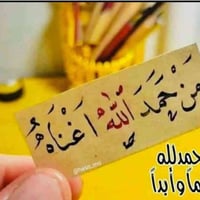 مَنْ حَمَدَ اللَّهُ اَغْنَاهُ
حمدلله
ماً وأبداً